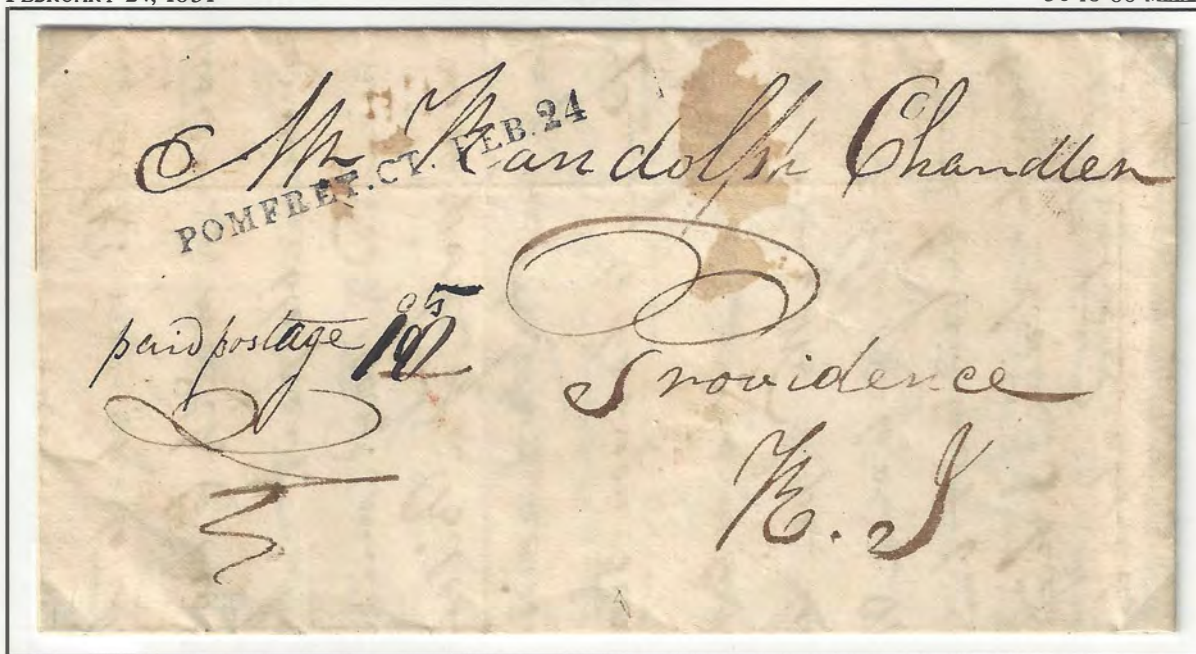 Mr Randolph Chandler
POMFRET.CT. FEB.24
paid postage
Providence
R. I